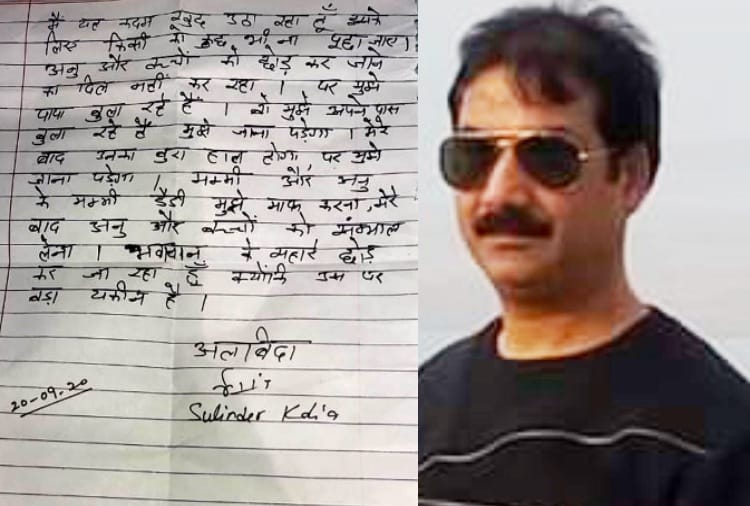 मैं यह कदम खुद उठा रहा हूँ इसके
लिए किसी को कुछ भी ना पूछा जाए।
अनु और बच्चों को छोड़ कर जाने
का दिल नहीं कर रहा। पर मुझे
पापा बुला रहे हैं। वो मुझे अपने पास
बुला रहे हैं मुझे जाना पड़ेगा। मेरे
बाद उनका बुरा हाल होगा, पर मुझे
जाना पड़ेगा। मम्मी और अनु
के मम्मी डैडी मुझे माफ करना, मेरे
बाद अनु और बच्चों को संम्भाल
लेना। भगवान के सहारे छोड़
कर जा रहा हूँ क्योंकि उस पर
बड़ा यकीन है।
अलविदा
20-09-20